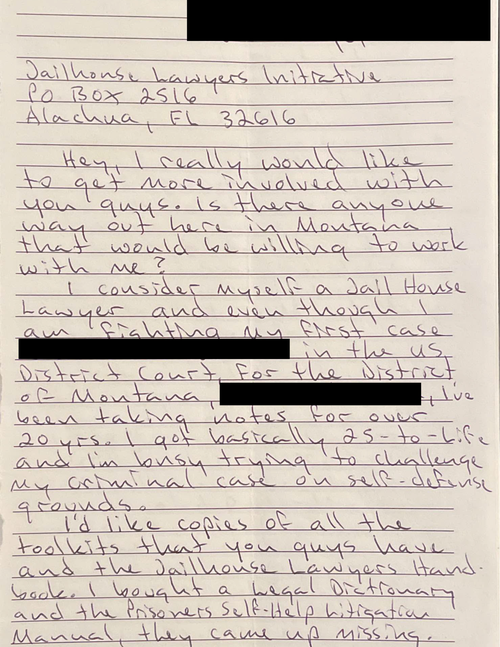 Jailhouse Lawyers Initiative
PO BOX 2516
Alachua, FL 32616
Hey, I really would like
to get more involved with
you guys. Is there anyone
way out here in Montana
that would be willing to work
with me?
I consider myself a Jail House
Lawyer and even though I
am fighting my first case
in the US
District Court, for the District
of Montana, , I've
been taking notes for over
20 yrs. I got basically 25-to-Life
and I'm busy trying to challenge
my criminal case on self-defense
grounds.
I'd like copies of all the
toolkits that you guys have
and the Jailhouse Lawyers Hand-
book. I bought a Legal Dictionary
and the Prisoners Self-Help Litigation
Manual, they came up missing.